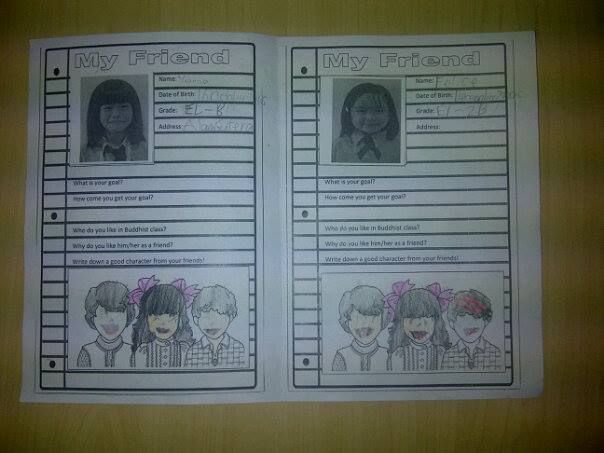 My Friend
Name:
Date of Birth:
Grade: EL-B
Address:
What is your goal?
How come you get your goal?
Who do you like in Buddhist class?
Why do you like him/her as a friend?
Write down a good character from your friends!
My Friend
Name:
Date of Birth:
Grade: EL-2B
Address:
What is your goal?
How come you get your goal?
Who do you like in Buddhist class?
Why do you like him/her as a friend?
Write down a good character from your friends!